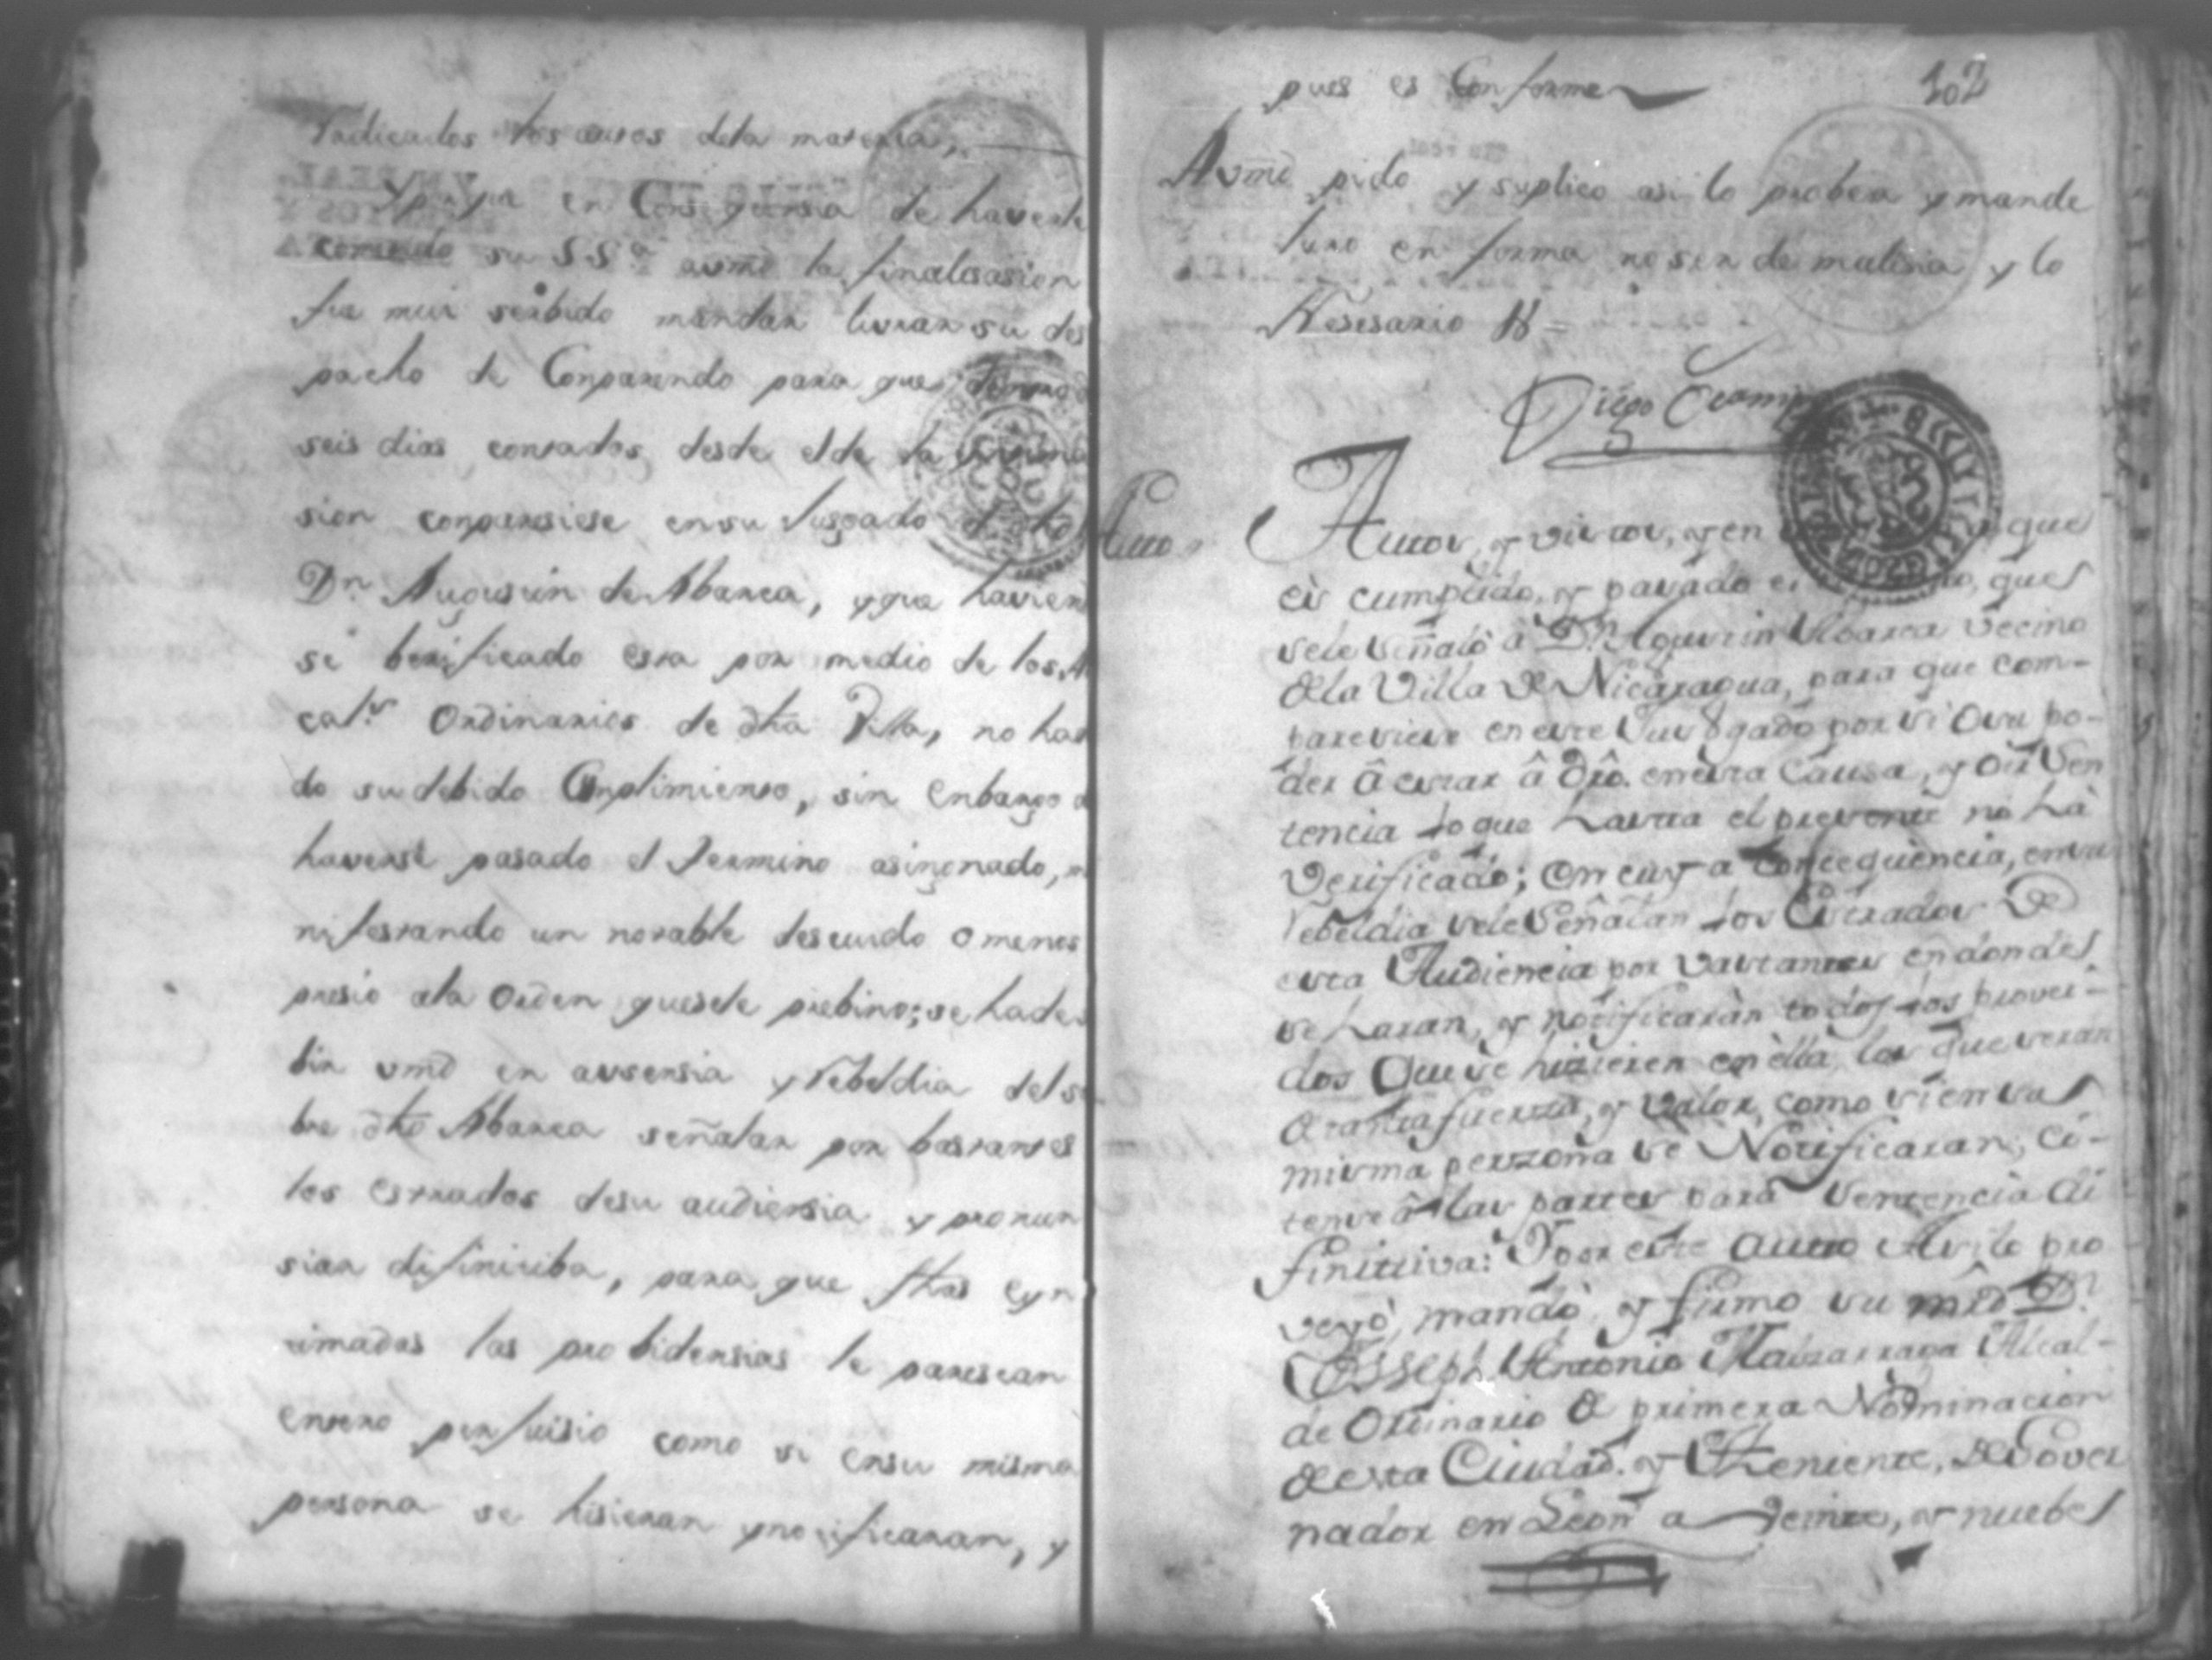 Radicados los autos dela materia,
Yporque en Consequensia de haverle
cometido su SSª avmd la finalisasion
fue mui serbido mandar livrar su des
pacho de Conparendo para que
seis dias contados desde elde la
sion conparesiese ensu Jusgado
Dn Augustin de Abarca, yque havien
se berificado esta por medio de los Al
cales Ordinarios de dha Villa, no ha
do sudebido Cunplimiento, sin enbargo
haverse pasado el Termino asingnado,
nifestando un notable descuido o menos
presio ala Orden quesele prebino; se hade
bir vmd en ausensia y Rebeldia del
bre dho Abarca señalar por bastantes
los estrados desu audiensia y pronun
siar difinitiba, para que fhas eyn
timadas las probidensias le paresean
entero perjuisio como si ensu misma
persona se hisieran ynotificaran, y
102
pues es Conforme
Avmd pido y suplico asi lo probea ymande
Juro en forma no ser de malisia y lo
Nesesario &=
Diego Ocampo
Auto
Autos, y vistos, y en que
es cumplido, y pasado el que
sele señalo â Dn Agustin Abarca vecino
dela Villa de Nicaragua, para que com-
pareciese eneste Jusgado por si ôsu po-
der â estar â dro. enesta Causa, y oir Sen
tencia lo que hasta el presente no hâ
verificado; en cuya concequencia, ensu
Rebeldia sele Señalan los Estrados de
esta Audiencia por vastantes endonde
se haran, y notificaràn todos los provei-
dos que se hizieren en ella, los que seran
de tanta fuerza, y valor, como sien su
misma perzona se Notificaran, ci-
tense â las partes para Sentencia di
finitiva: Y por este auto Asi lo pro
veyò, mandò, y firmo su mrd Dn
Josseph Antonio Alcal-
de Ordinario de primera Nominacion
de esta Ciudad. y Theniente, de Gover
nador en Leon a veinte, y nuebe